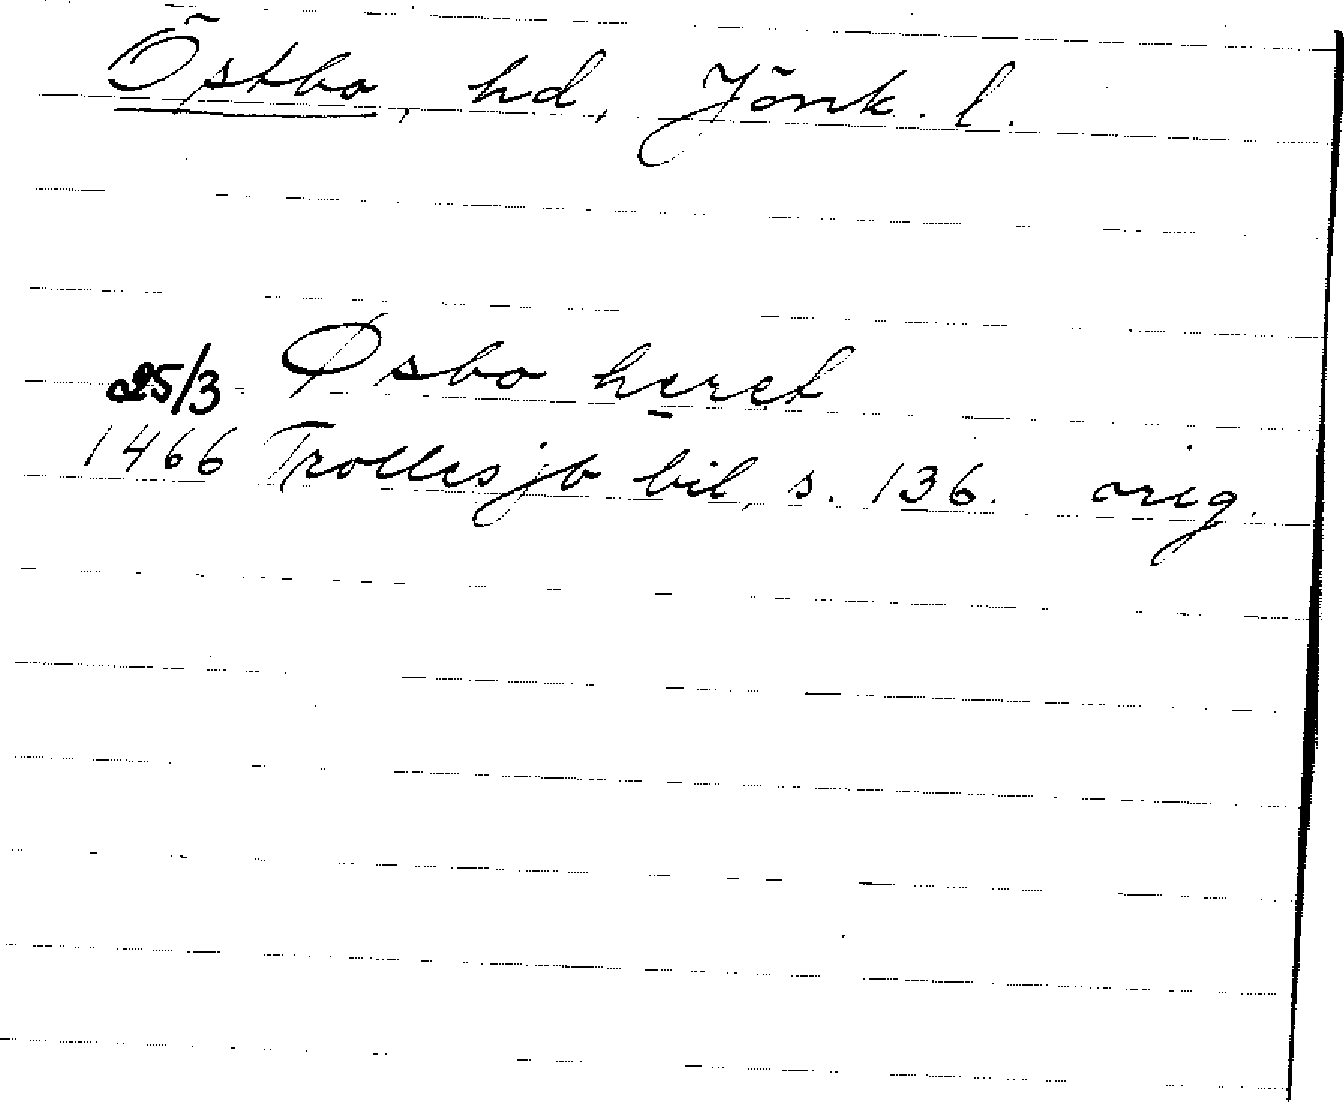 Östbo, hd, Jönk. l.
25/3 Øsbo heret
1466 Trollesjb bil, s. 136. orig.